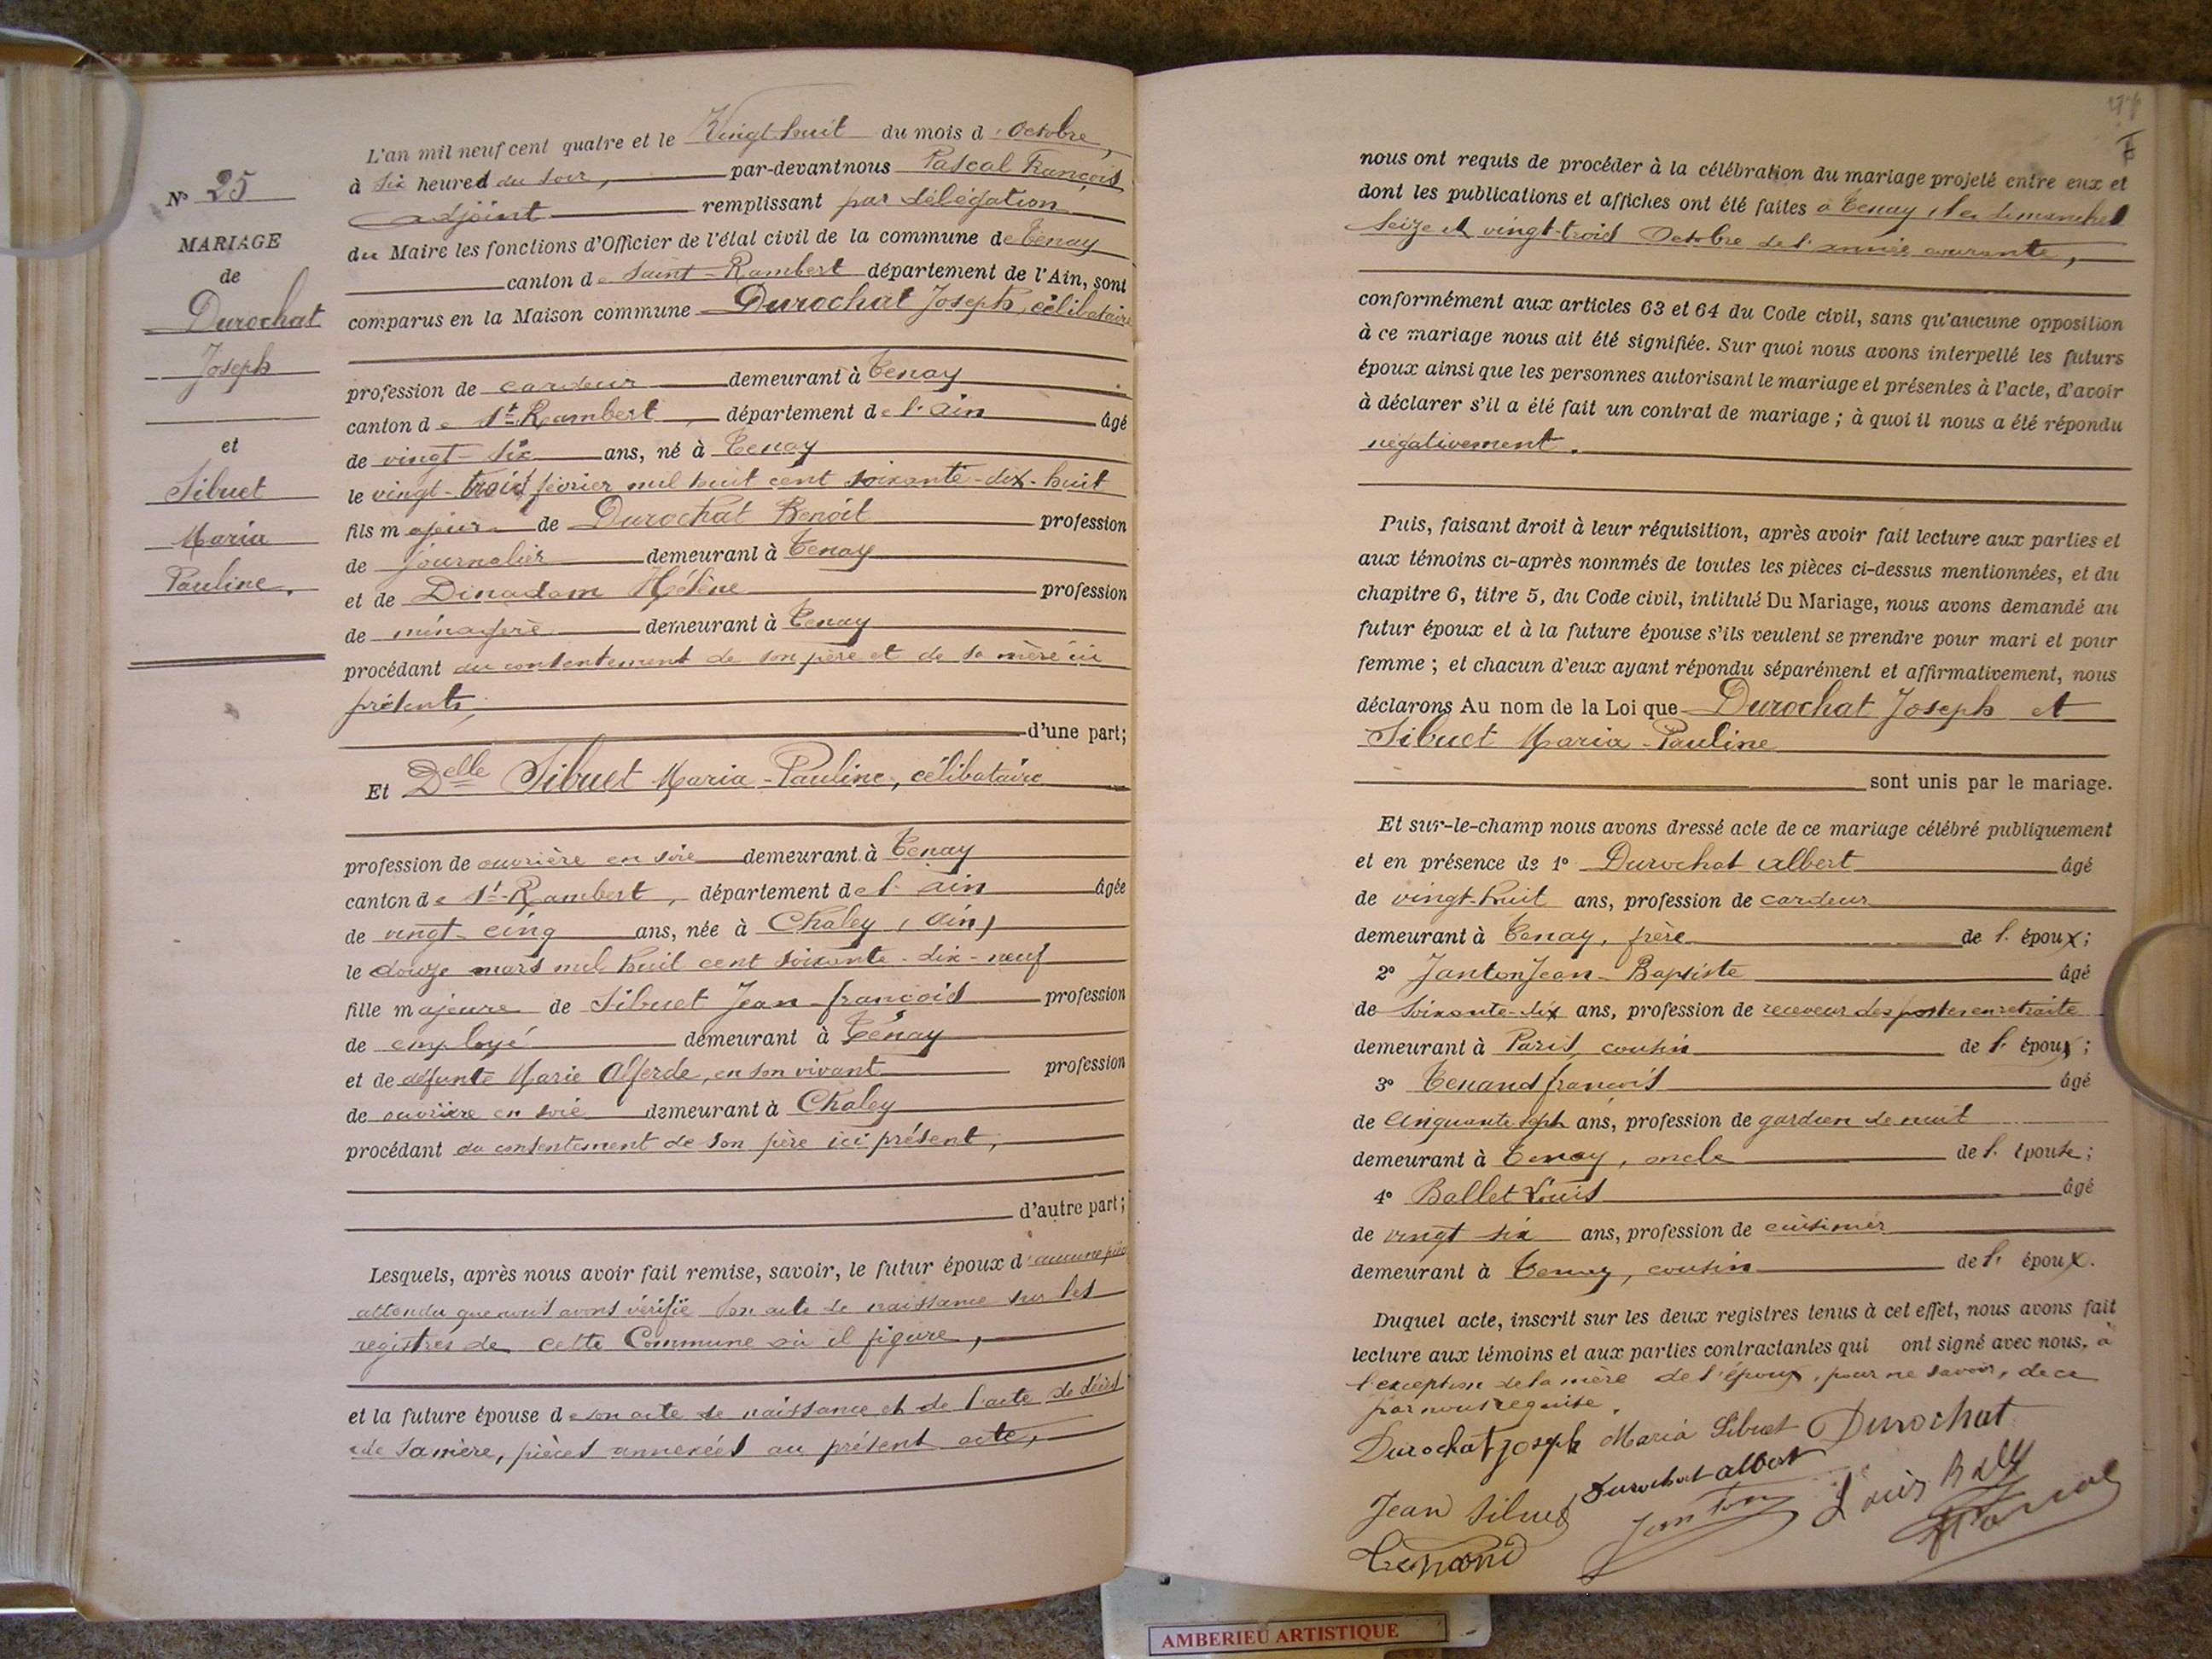 N° 25
MARIAGE
de
Durochat
Joseph
et
Sibuet
Maria
Pauline.
L'an mil neuf cent quatre et le Vingt-huit du mois d'Octobre,
à six heures du soir, par-devant nous Pascal François
adjoint remplissant par délégation
du Maire les fonctions d'Officier de l'état civil de la commune de Tenay
canton de Saint-Rambert département de l'Ain, sont
comparus en la Maison commune Durochat Joseph, célibataire
profession de cardeur demeurant à Tenay
canton de St-Rambert, département de l'Ain âgé
de vingt-six ans, né à Tenay
le vingt-trois février mil huit cent soixante-dix-huit
fils majeur de Durochat Benoit profession
de journalier demeurant à Tenay
et de Dinadam Hélène profession
de ménagère demeurant à Tenay
procédant du consentement de son père et de sa mère ici
présents,
d'une part;
Et Delle Sibuet Maria-Pauline, célibataire
profession de ouvrière en soie demeurant à Tenay
canton de St-Rambert, département de l'Ain âgée
de vingt-cinq ans, née à Chaley (Ain)
le douze mars mil huit cent soixante-dix-neuf
fille majeure de Sibuet Jean-françois profession
de employé demeurant à Ténay
et de défunte Marie Alferde, en son vivant profession
de ouvrière en soie demeurant à Chaley
procédant du consentement de son père ici présent,
d'autre part;
Lesquels, après nous avoir fait remise, savoir, le futur époux d'aucune pièce
attendu que nous avons vérifié son acte de naissance sur les
registres de cette Commune où il figure,
et la future épouse de son acte de naissance et de l'acte de décès
de sa mère, pièces annexées au présent acte,
nous ont requis de procéder à la célébration du mariage projeté entre eux et
dont les publications et affiches ont été faites à Tenay les dimanches
seize et vingt-trois Octobre de l'année courante,
conformément aux articles 63 et 64 du Code civil, sans qu'aucune opposition
à ce mariage nous ait été signifiée. Sur quoi nous avons interpellé les futurs
époux ainsi que les personnes autorisant le mariage et présentes à l'acte, d'avoir
à déclarer s'il a été fait un contrat de mariage; à quoi il nous a été répondu
négativement.
Puis, faisant droit à leur réquisition, après avoir fait lecture aux parties et
aux témoins ci-après nommés de toutes les pièces ci-dessus mentionnées, et du
chapitre 6, titre 5, du Code civil, intitulé Du Mariage, nous avons demandé au
futur époux et à la future épouse s'ils veulent se prendre pour mari et pour
femme; et chacun d'eux ayant répondu séparément et affirmativement, nous
déclarons Au nom de la Loi que Durochat Joseph et
Sibuet Maria-Pauline
sont unis par le mariage.
Et sur-le-champ nous avons dressé acte de ce mariage célébré publiquement
et en présence de 1° Durochat Albert âgé
de vingt-huit ans, profession de cardeur
demeurant à Tenay, frère de l'époux;
2° Janton Jean-Baptiste âgé
de soixante-six ans, profession de receveur des postes en retraite
demeurant à Paris, cousin de l'époux;
3° Tenand françois âgé
de cinquante sept ans, profession de gardien de nuit
demeurant à Tenay, oncle de l'épouse;
4° Ballet Louis âgé
de vingt six ans, profession de cuisinier
demeurant à Tenay, cousin de l'époux.
Duquel acte, inscrit sur les deux registres tenus à cet effet, nous avons fait
lecture aux témoins et aux parties contractantes qui ont signé avec nous, à
l'exception de la mère de l'époux, pour ne savoir, de ce
par nous requise.
Durochat Joseph Maria Sibuet Durochat
Jean Sibuet Durochat albert Janton Louis
Tenand
AMBERIEU ARTISTIQUE